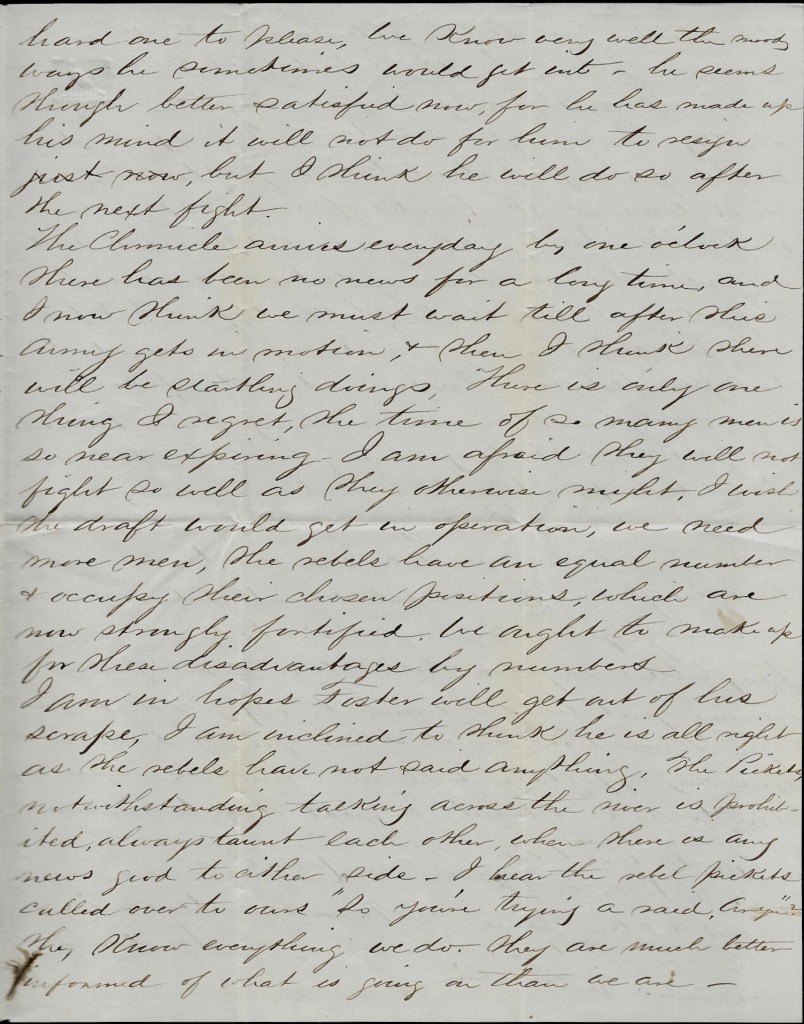 hard one to please, We Know very well the moody
ways he sometimes would get into - he seems
though better satisfied now, for he has made up
his mind it will not do for him to resign
just now, but I think he will do so after
the next fight.
The Chronicle arrives everyday by one o'clock
there has been no news for a long time, and
I now think we must wait till after this
Army gets in motion, & then I think there
will be startling doings, There is only one
thing I regret, the time of so many men is
so near expiring - I am afraid they will not
fight so well as they otherwise might, I wish
the draft would get in operation, we need
more men, the rebels have an equal number
& occupy their chosen positions, which are
now strongly fortified. We ought to make up
for these disadvantages by numbers
I am in hopes Foster will get out of his
scrape, I am inclined to think he is all right
as the rebels have not said anything, The Pickets,
notwithstanding talking across the river is prohib-
ited, always taunt each other, when there is any
news good to either side - I hear the rebel pickets
called over to ours "So you're trying a raid, Aryn"?
they Know everything we do - they are much better
informed of what is going on than we are -